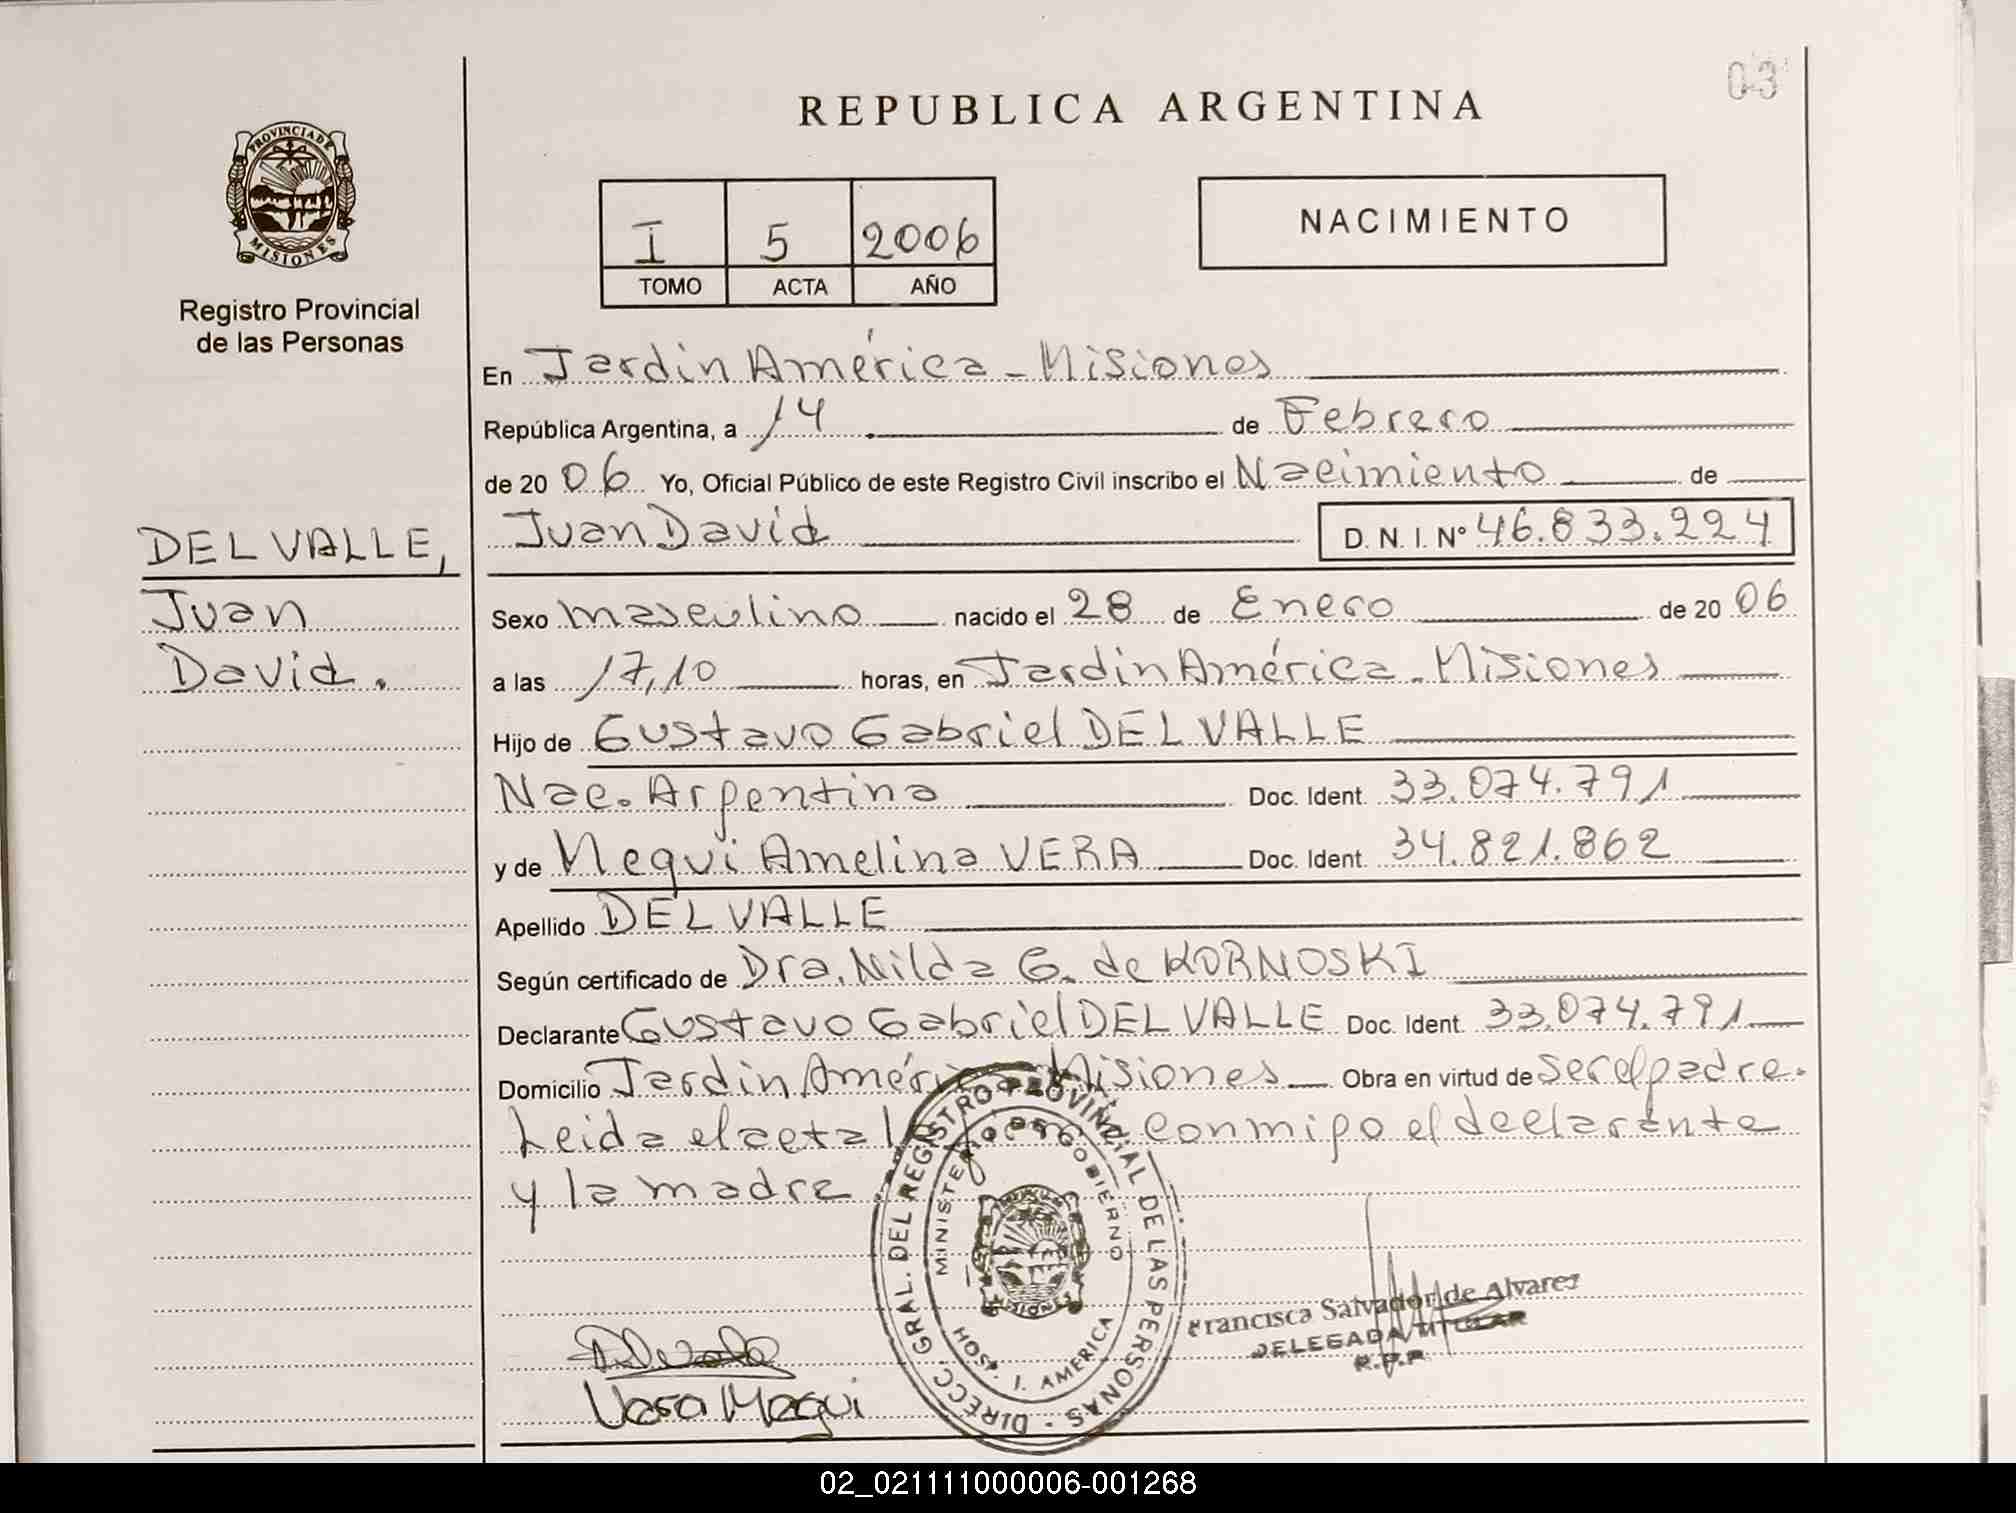 03
REPUBLICA ARGENTINA
PROVINCIA DE
MISIONES
Registro Provincial
de las Personas
I 5 2006
TOMO ACTA AÑO
NACIMIENTO
En Jardin América - Misiones
República Argentina, a 14 de Febrero
de 20 06 Yo, Oficial Público de este Registro Civil inscribo el Nacimiento de
Juan David D.N.I. Nº 46.833.224
DEL VALLE,
Juan
David.
Sexo masculino nacido el 28 de Enero de 20 06
a las 17,10 horas, en Jardin América - Misiones
Hijo de Gustavo Gabriel DEL VALLE
Nac. Argentina Doc. Ident. 33.074.791
y de Mequi Amelina VERA Doc. Ident. 34.821.862
Apellido DEL VALLE
Según certificado de Dra. Nilda G. de KORNOSKI
Declarante Gustavo Gabriel DEL VALLE Doc. Ident. 33.074.791
Domicilio Jardin América Misiones Obra en virtud de ser el padre.
Leida el acta conmigo el declarante
y la madre
DIRECC. GRAL. DEL REGISTRO PROVINCIAL DE LAS PERSONAS
MINISTERIO DE GOBIERNO
MISIONES
HOSP. J. AMERICA
Francisca Salvador de Alvarez
DELEGADA TITULAR
R.P.P.
Vera Mequi
02_021111000006-001268